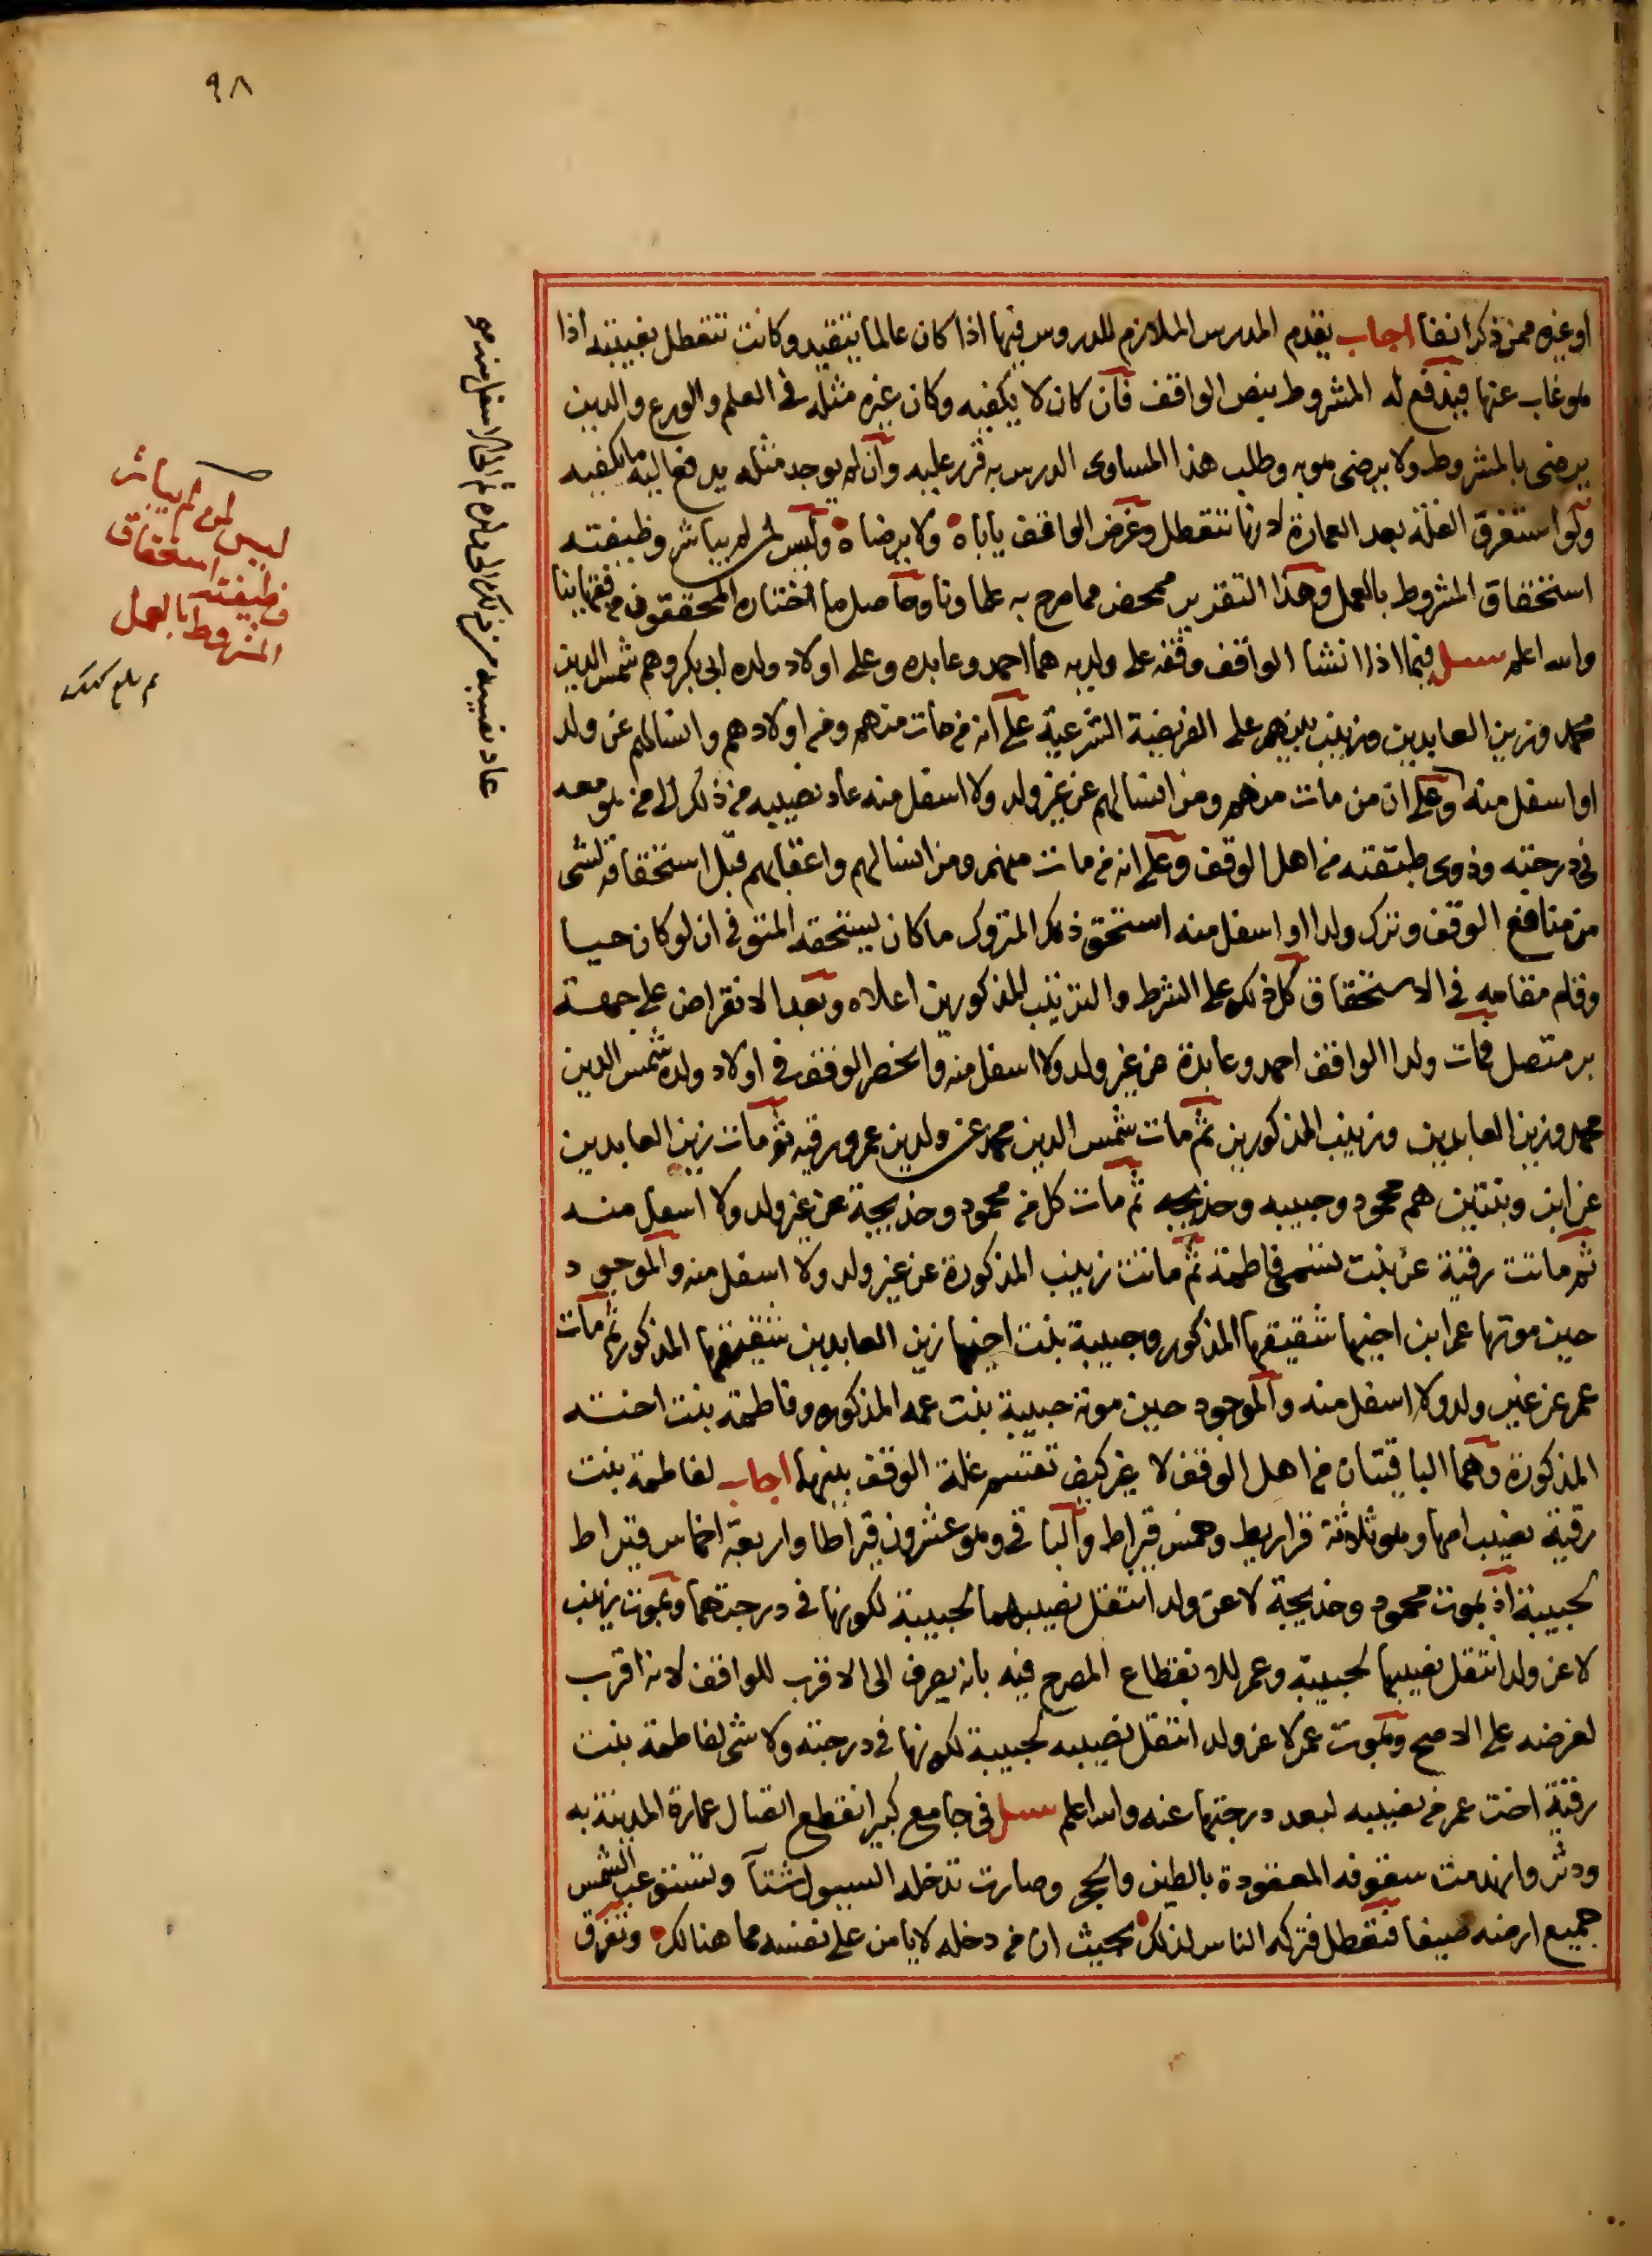 ٩٨
او غيره ممن ذكر انفا اجاب يقدم المدرس الملازم للدروس فيها اذا كان عالما بتقييد وكانت تتعطل بغيبته اذا
هو غاب عنها فيدفع له المشروط بنص الواقف فان كان لا يكفيه وكان غيره مثله في العلم والورع والدين
يرضى بالمشروط ولا يرضى هو به وطلب هذا المساوى الدرس به قرر عليه وان لم يوجد مثله يدفع اليه ما يكفيه
ولو استغرق الغلة بعد العمارة لانها تتعطل وغرض الواقف ياباه ولا يرضاه وليس لمن لم يباشر وظيفته
استحقاق المشروط بالعمل وهذا التقدير ممحض مما صرح به علماونا وحاصل ما اختاره المحققون من فقهاينا
والله اعلم سيل فيما اذا انشا الواقف وقفه على ولديه هما احمد وعابده وعلى اولاد ولده ابى بكر وهم شمس الدين
محمد وزين العابدين وزينب بينهم على الفريضة الشرعية على انه من مات منهم ومن اولادهم وانسالهم عن ولد
او اسفل منه وعلى ان من مات منهم ومن انسالهم عن غير ولد ولا اسفل منه عاد نصيبه من ذلك الى من هو معه
في درجته وذوى طبقته من اهل الوقف وعلى انه من مات منهم ومن انسالهم واعقابهم قبل استحقاقه لشى
من منافع الوقف وترك ولدا او اسفل منه استحق ذلك المتروك ما كان يستحقه المتوفى ان لو كان حيا
وقام مقامه في الاستحقاق كل ذلك على الشرط والترتيب المذكورين اعلاه وبعد الانقراض على جهة
بر متصل فمات ولدا الواقف احمد وعابدة عن غير ولد ولا اسفل منه وانحصر الوقف في اولاد ولده شمس الدين
محمد وزين العابدين وزينب المذكورين ثم مات شمس الدين محمد عن ولدين عمر ورقيه ثم مات زين العابدين
عن ابن وبنتين هم محمود وحبيبه وخديجه ثم مات كل من محمود وخديجة عن غير ولد ولا اسفل منه
ثم ماتت رقية عن بنت تسمى فاطمة ثم ماتت زينب المذكورة عن غير ولد ولا اسفل منه والموجود
حين موتها عمر ابن اخيها شقيقها المذكور وحبيبة بنت اخيها زين العابدين شقيقها المذكور ثم مات
عمر عن غير ولد ولا اسفل منه والموجود حين موته حبيبة بنت عمه المذكوره وفاطمة بنت اخته
المذكورة وهما الباقيتان من اهل الوقف لا غير كيف تقتسم غلة الوقف بينهما اجاب لفاطمة بنت
رقية نصيب امها وهو ثلاثة قراريط وخمس قيراط والباقى وهو عشرون قيراطا واربعة اخماس قيراط
لحبيبة اذ بموت محمود وخديجة لا عن ولد انتقل نصيبهما لحبيبة لكونها في درجتهما وبموت زينب
لا عن ولد انتقل نصيبها لحبيبة وعمر للانقطاع المصرح فيه بانه يصرف الى الاقرب للواقف لانه اقرب
لغرضه على الاصح وبموت عمر لا عن ولد انتقل نصيبه لحبيبة لكونها في درجته ولا شى لفاطمة بنت
رقية اخت عمر من نصيبه لبعد درجتها عنه والله اعلم سيل في جامع كبير انقطع اتصال عمارة المدينة به
ودثر وانهدمت سقوفه المعقودة بالطين والحجر وصارت تدخله السيول شتآ وتستوعب الشمس
جميع ارضه صيفا فتعطل فتركه الناس لذلك بحيث ان من دخله لا يامن على نفسه مما هنالك وتفرق
ليس لمن لم يباشر
وظيفته استحقاق
المشروط بالعمل